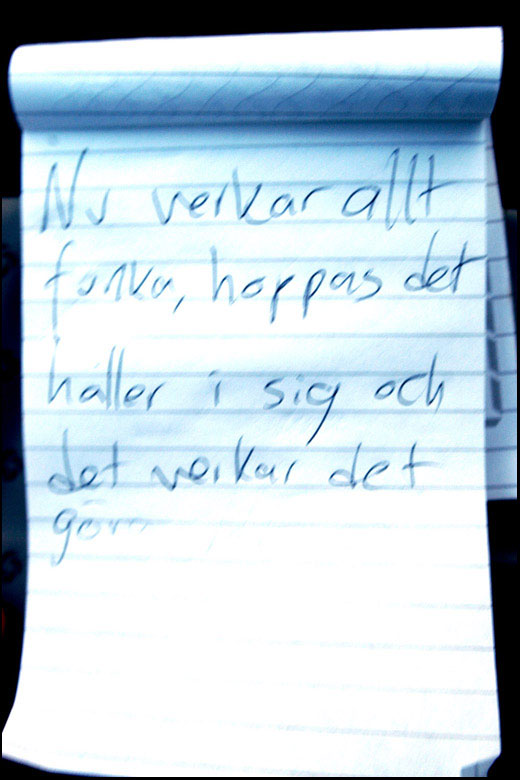 Nu verkar allt
funka, hoppas det
håller i sig och
det verkar det
göra